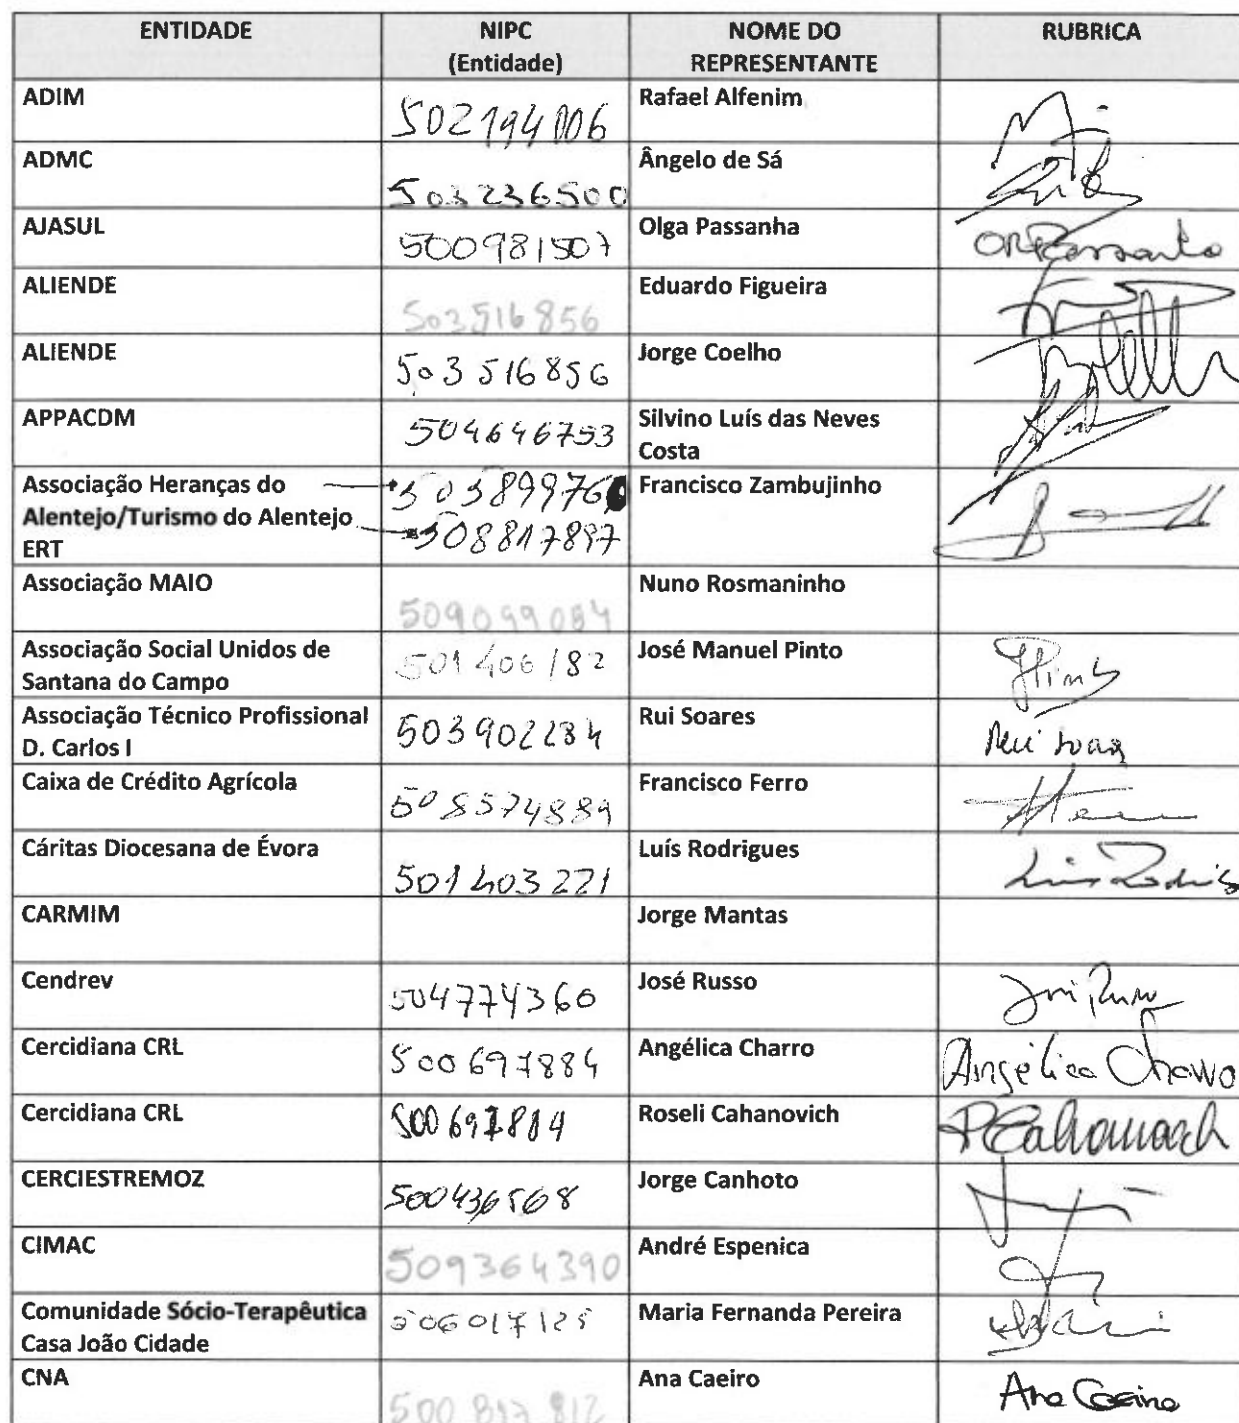 ENTIDADE NIPC NOME DO RUBRICA
(Entidade) REPRESENTANTE
ADIM 502194006 Rafael Alfenim
ADMC 503236500 Ângelo de Sá
AJASUL 500981507 Olga Passanha
ALIENDE 503516856 Eduardo Figueira
ALIENDE 503516856 Jorge Coelho
APPACDM 504646753 Silvino Luís das Neves
Costa
Associação Heranças do 50389976 Francisco Zambujinho
Alentejo/Turismo do Alentejo 508817897
ERT
Associação MAIO 509099084 Nuno Rosmaninho
Associação Social Unidos de 501406182 José Manuel Pinto JPinto
Santana do Campo
Associação Técnico Profissional 503902284 Rui Soares Rui Soares
D. Carlos I
Caixa de Crédito Agrícola 508574889 Francisco Ferro
Cáritas Diocesana de Évora 501403221 Luís Rodrigues Luis Rodrigues
CARMIM Jorge Mantas
Cendrev 504774360 José Russo José Russo
Cercidiana CRL 500697884 Angélica Charro Angélica Charro
Cercidiana CRL 500697884 Roseli Cahanovich RCahanovich
CERCIESTREMOZ 500436568 Jorge Canhoto
CIMAC 509364390 André Espenica
Comunidade Sócio-Terapêutica 506017125 Maria Fernanda Pereira
Casa João Cidade
CNA 500817812 Ana Caeiro Ana Caeiro